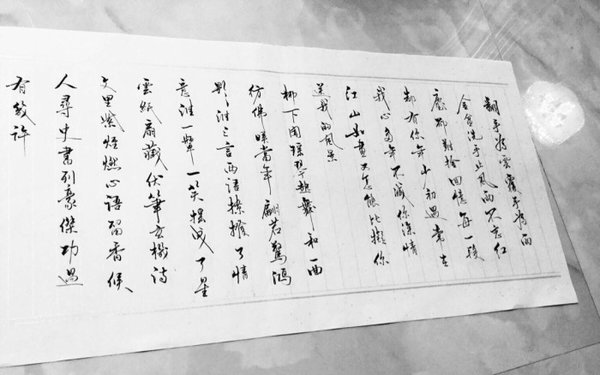 翻手為雲覆手為雨
金盆洗手止風雨不忘紅
顏卻難拾回憶每一段
都有你年少初遇常在
我心多年不減你深情
江山如畫又怎能比擬你
送我的風景
柳下聞瑤琴起舞和一曲
仿佛映當年翩若驚鴻
影誰三言兩語撩撥了情
意誰一顰一笑搖曳了星
雲紙扇藏伏筆玄機詩
文里紫煙燃心語留香候
人尋史書列豪傑功過
有幾許